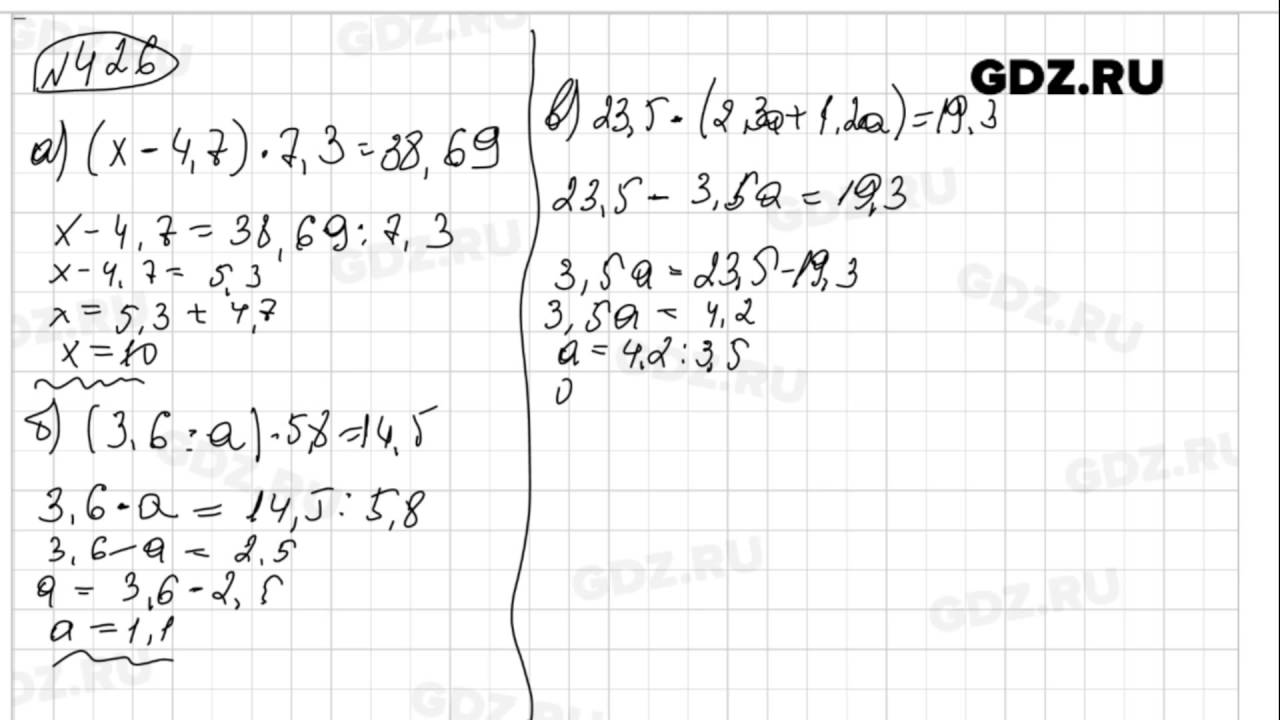 №426
а) (x - 4,7) · 7,3 = 38,69
x - 4,7 = 38,69 : 7,3
x - 4,7 = 5,3
x = 5,3 + 4,7
x = 10
б) (3,6 - a) · 5,8 = 14,5
3,6 - a = 14,5 : 5,8
3,6 - a = 2,5
a = 3,6 - 2,5
a = 1,1
GDZ.RU
в) 23,5 - (2,3a + 1,2a) = 19,3
23,5 - 3,5a = 19,3
3,5a = 23,5 - 19,3
3,5a = 4,2
a = 4,2 : 3,5
0